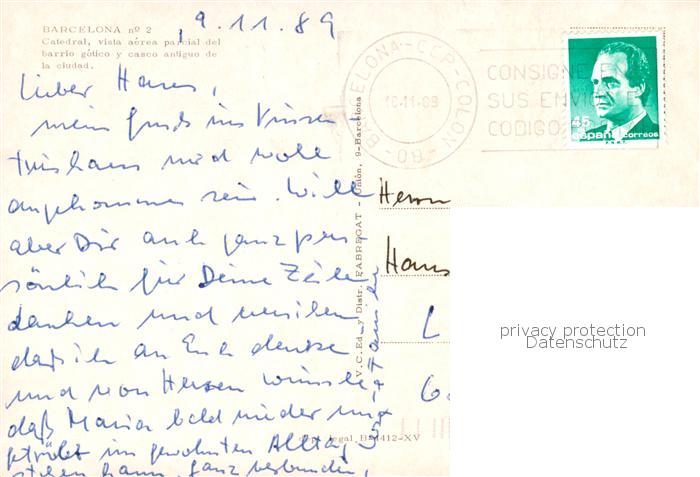 BARCELONA nº 2
Catedral, vista aérea parcial del
barrio gótico y casco antiguo de
la ciudad.
9.11.89
Lieber Hans,
mein Gruß ins Vinzen-
tinshaus wird wohl
angekommen sein. Will
aber Dir auch ganz per-
sönlich für Deine Zeilen
danken und
daß ich an Euch denke
und von Herzen wünsche
daß Maria bald wieder un-
getrübt im gewohnten Alltag
stehen kann. Ganz verbunden,
V. C. Ed. y Distr. FABREGAT - Unión, 9-Barcelona
Dept. legal B. 412-XV
BARCELONA-CCP-COLON
10-11-89
09
CONSIGNE E
SUS ENVIO
CODIGO
45
españa correos
F.N.M.T.
Herrn
Hans
L
6
privacy protection
Datenschutz